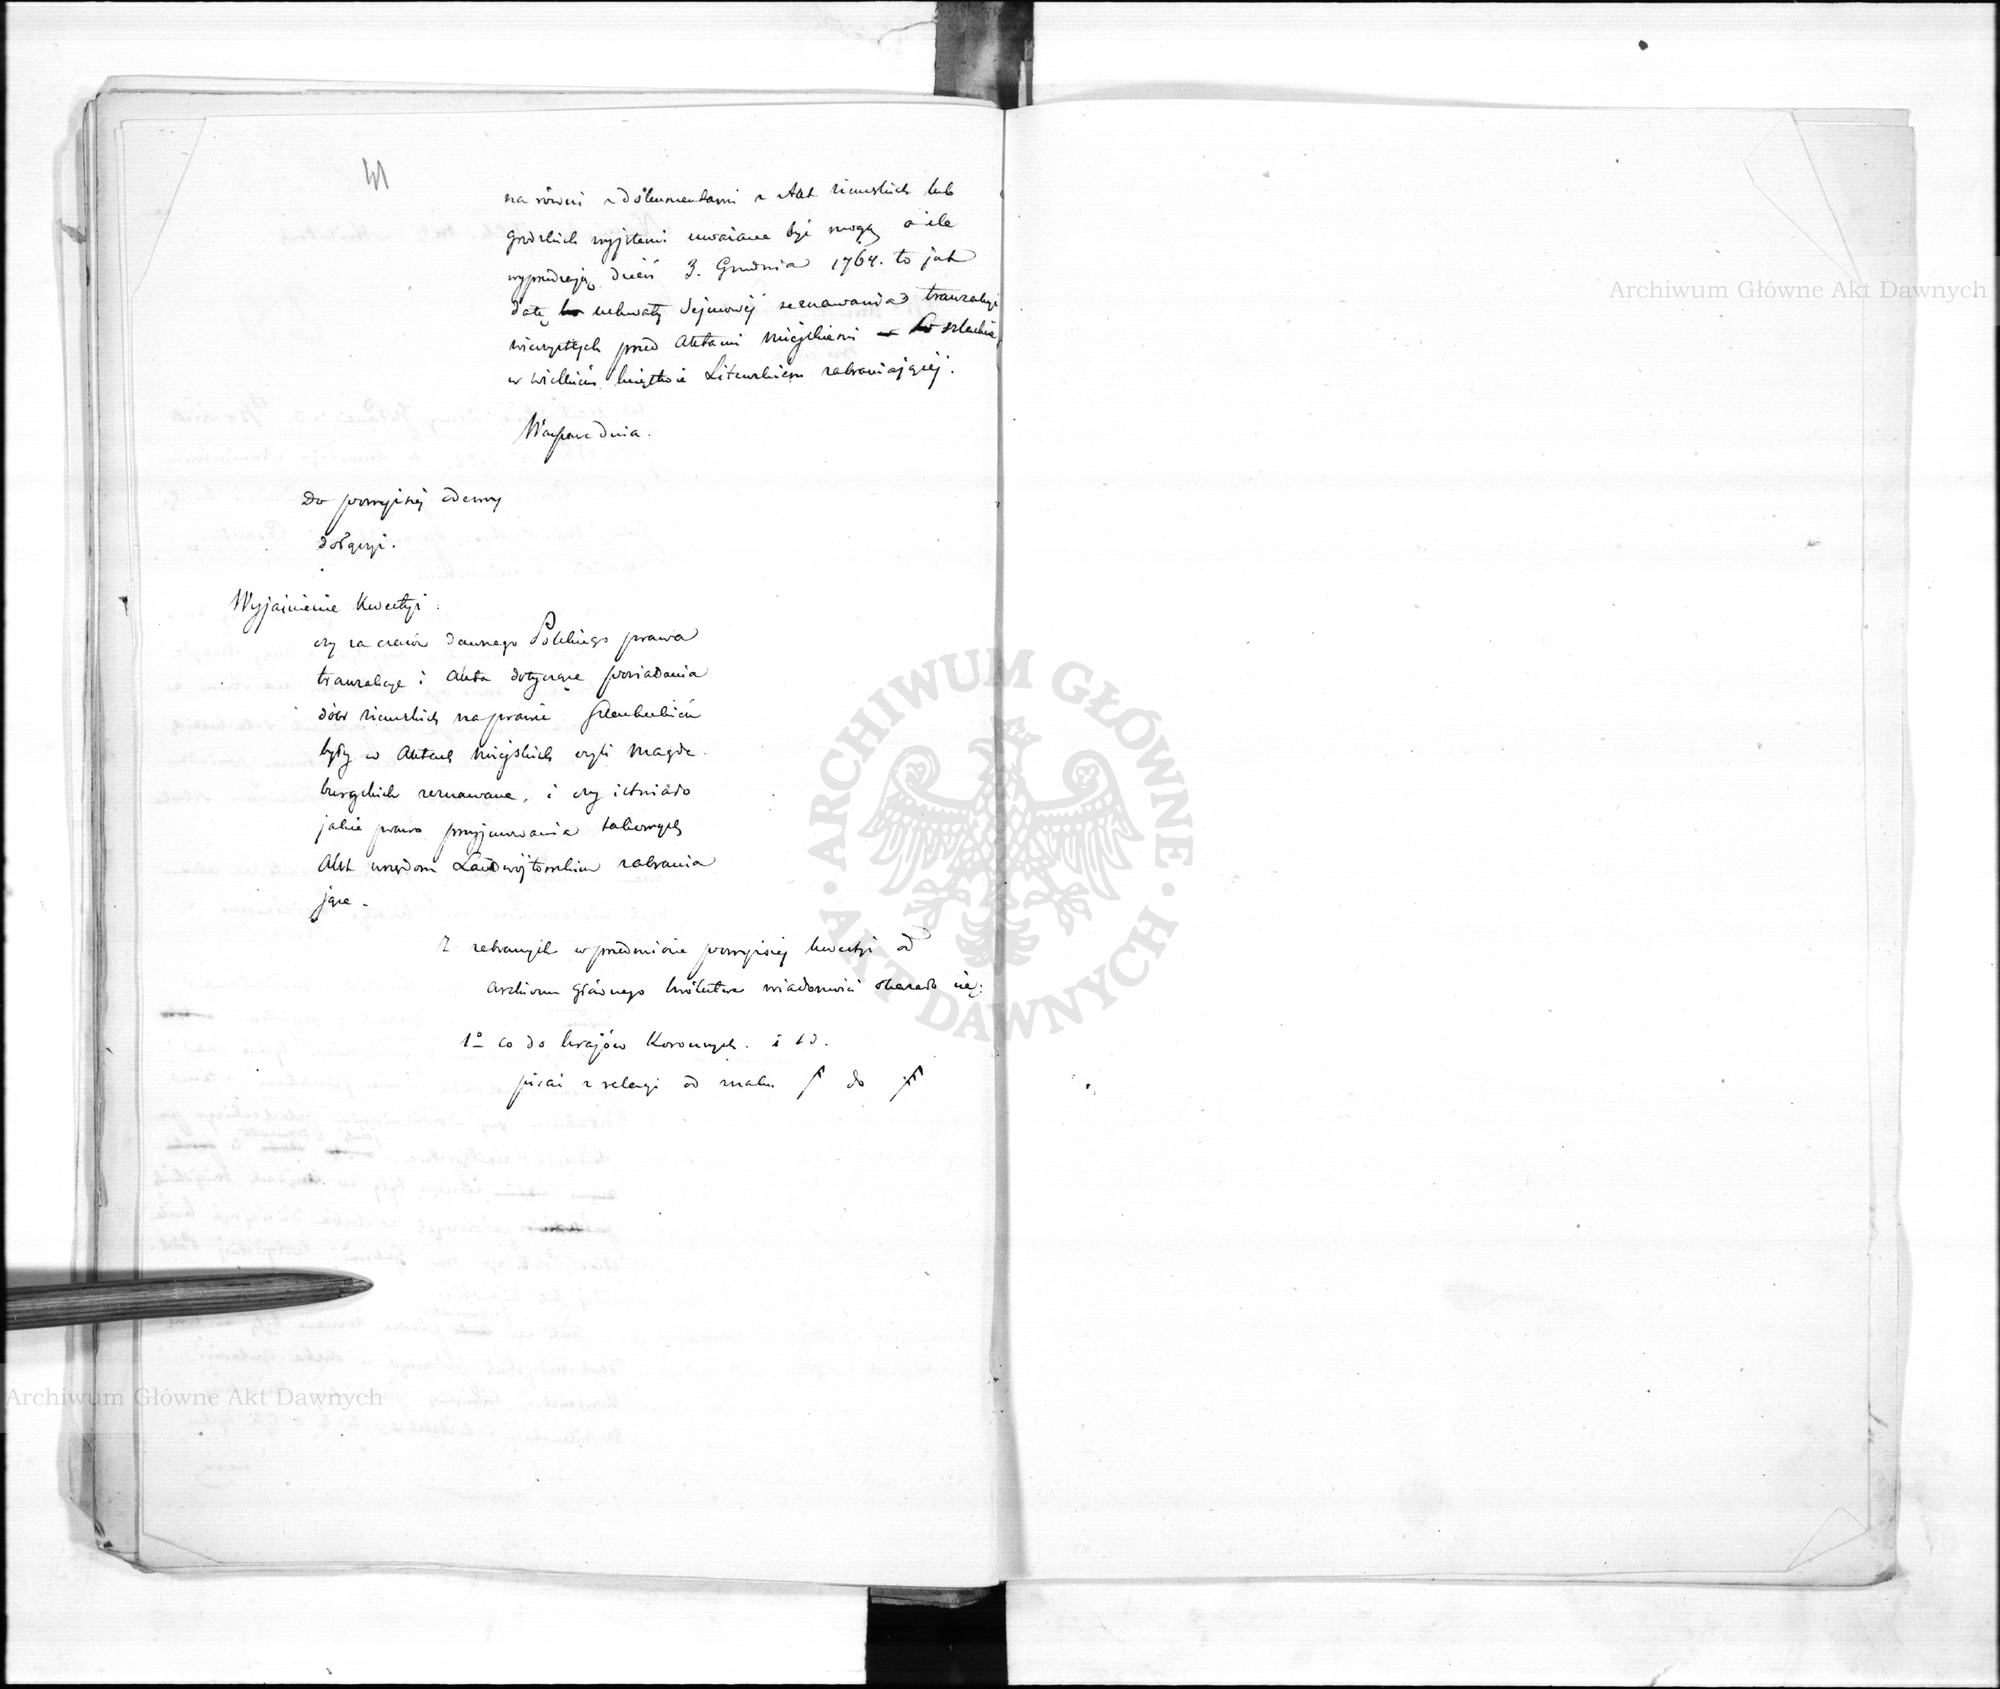 na równi z dokumentami z Akt ziemskich lub
grodzkich wyjętemi uważane być mogą o ile
wyprzedzają dzień 3. Grudnia 1764. to jest
datę uchwały Sejmowéj zeznawania tranzakcyi
wieczystych przed Aktami miejskiemi szlachcie
w wielkiém księstwie Litewskiem zabraniającéj.
Warszawa dnia.
Do powyższéj odezwy
dołączyć.
Wyjaśnienie Kwestyi:
czy za czasów dawnego Polskiego prawa
tranzakcye i Akta dotyczące posiadania
dóbr ziemskich na prawie szlacheckiém
były w Aktach miejskich czyli magde-
burgskich zeznawane, i czy istniało
jakie prawo przyjmowania takowych
Akt urzędom Landwójtowskim zabrania
jące.
Z zebranych w przedmiocie powyższéj kwestyi od
Archiwum głównego królestwa wiadomości okazało się:
1o co do krajów Koronnych. i td.
pisać z relacyi od znaku do
Archiwum Główne Akt Dawnych
Archiwum Główne Akt Dawnych
ARCHIWUM GŁÓWNE
AKT DAWNYCH